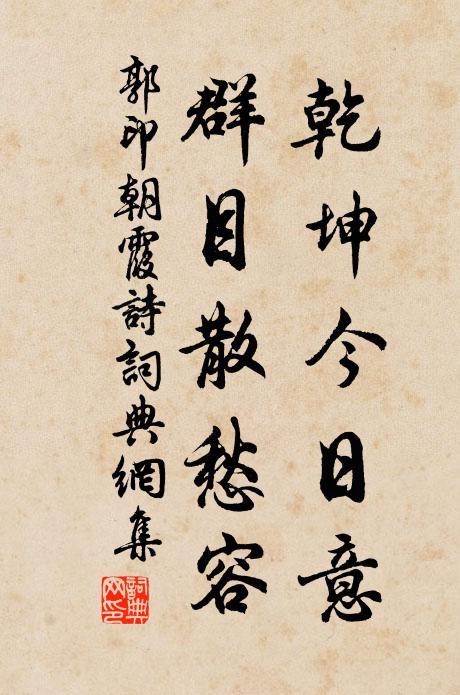 乾坤今日意
群目散愁容
郭印朝霞詩詞典網集
詞典網印